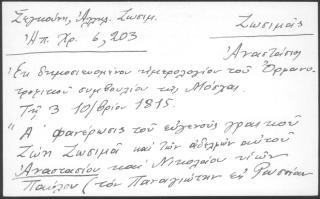 Σεγκούνη, Αλληλ. Ζωσιμ.
Ηπ. Χρ. 6, 203
Ζωσιμάς
Αναστάσιος
Εκ δημοσιευομένου ημερολογίου του Ορφανο-
τροφικού συμβουλίου της Μόσχας.
Τη 3 10/βρίου 1815.
"Α' φανέρωσις του ευγενούς γραικού
Ζώη Ζωσιμά και των αδελφών αυτού
Αναστασίου και Νικολάου υιών
Παύλου (των Παναγιώτων εν Ρωσσίαν